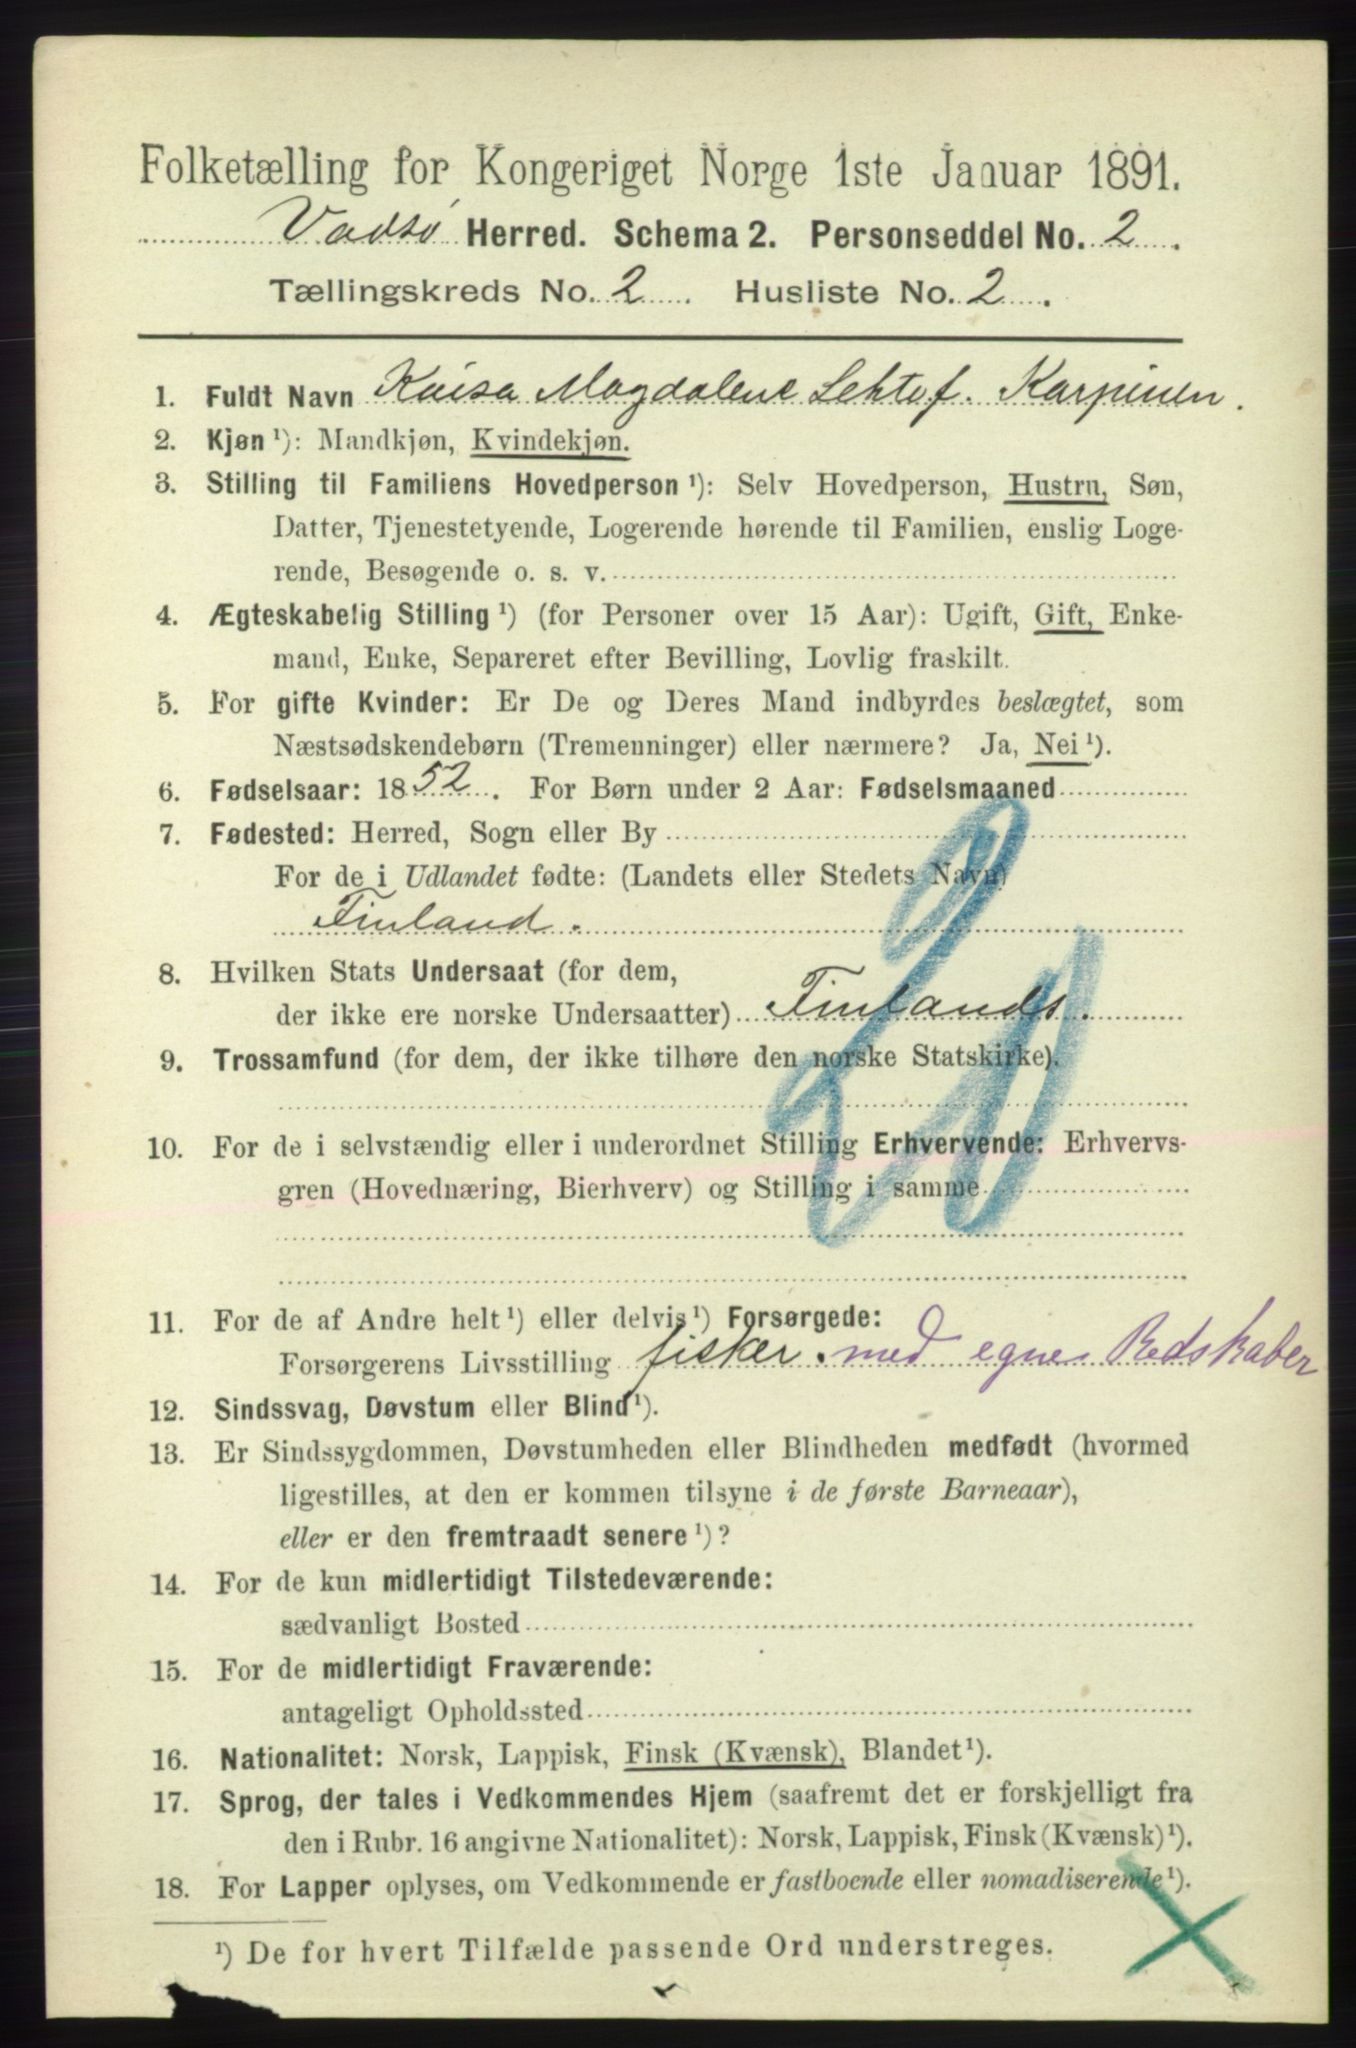 Folketælling for Kongeriget Norge 1ste Januar 1891.
Vadsø Herred. Schema 2. Personseddel No. 2.
Tællingskreds No. 2. Husliste No. 2.
1. Fuldt Navn Kaisa Magdalene Lehtof. Karpinen.
2. Kjøn ¹): Mandkjøn, Kvindekjøn.
3. Stilling til Familiens Hovedperson ¹): Selv Hovedperson, Hustru, Søn,
Datter, Tjenestetyende, Logerende hørende til Familien, enslig Loge-
rende, Besøgende o. s. v.
4. Ægteskabelig Stilling ¹) (for Personer over 15 Aar): Ugift, Gift, Enke-
mand, Enke, Separeret efter Bevilling, Lovlig fraskilt.
5. For gifte Kvinder: Er De og Deres Mand indbyrdes beslægtet, som
Næstsødskendebørn (Tremenninger) eller nærmere? Ja, Nei ¹).
6. Fødselsaar: 1852. For Børn under 2 Aar: Fødselsmaaned
7. Fødested: Herred, Sogn eller By
For de i Udlandet fødte: (Landets eller Stedets Navn)
Finland.
8. Hvilken Stats Undersaat (for dem,
der ikke ere norske Undersaatter) Finlands.
9. Trossamfund (for dem, der ikke tilhøre den norske Statskirke).
10. For de i selvstændig eller i underordnet Stilling Erhvervende: Erhvervs-
gren (Hovednæring, Bierhverv) og Stilling i samme
11. For de af Andre helt ¹) eller delvis ¹) Forsørgede:
Forsørgerens Livsstilling fisker. med egne Redskaber
12. Sindssvag, Døvstum eller Blind ¹).
13. Er Sindssygdommen, Døvstumheden eller Blindheden medfødt (hvormed
ligestilles, at den er kommen tilsyne i de første Barneaar),
eller er den fremtraadt senere ¹)?
14. For de kun midlertidigt Tilstedeværende:
sædvanligt Bosted
15. For de midlertidigt Fraværende:
antageligt Opholdssted
16. Nationalitet: Norsk, Lappisk, Finsk (Kvænsk), Blandet ¹).
17. Sprog, der tales i Vedkommendes Hjem (saafremt det er forskjelligt fra
den i Rubr. 16 angivne Nationalitet): Norsk, Lappisk, Finsk (Kvænsk) ¹).
18. For Lapper oplyses, om Vedkommende er fastboende eller nomadiserende ¹).
¹) De for hvert Tilfælde passende Ord understreges.